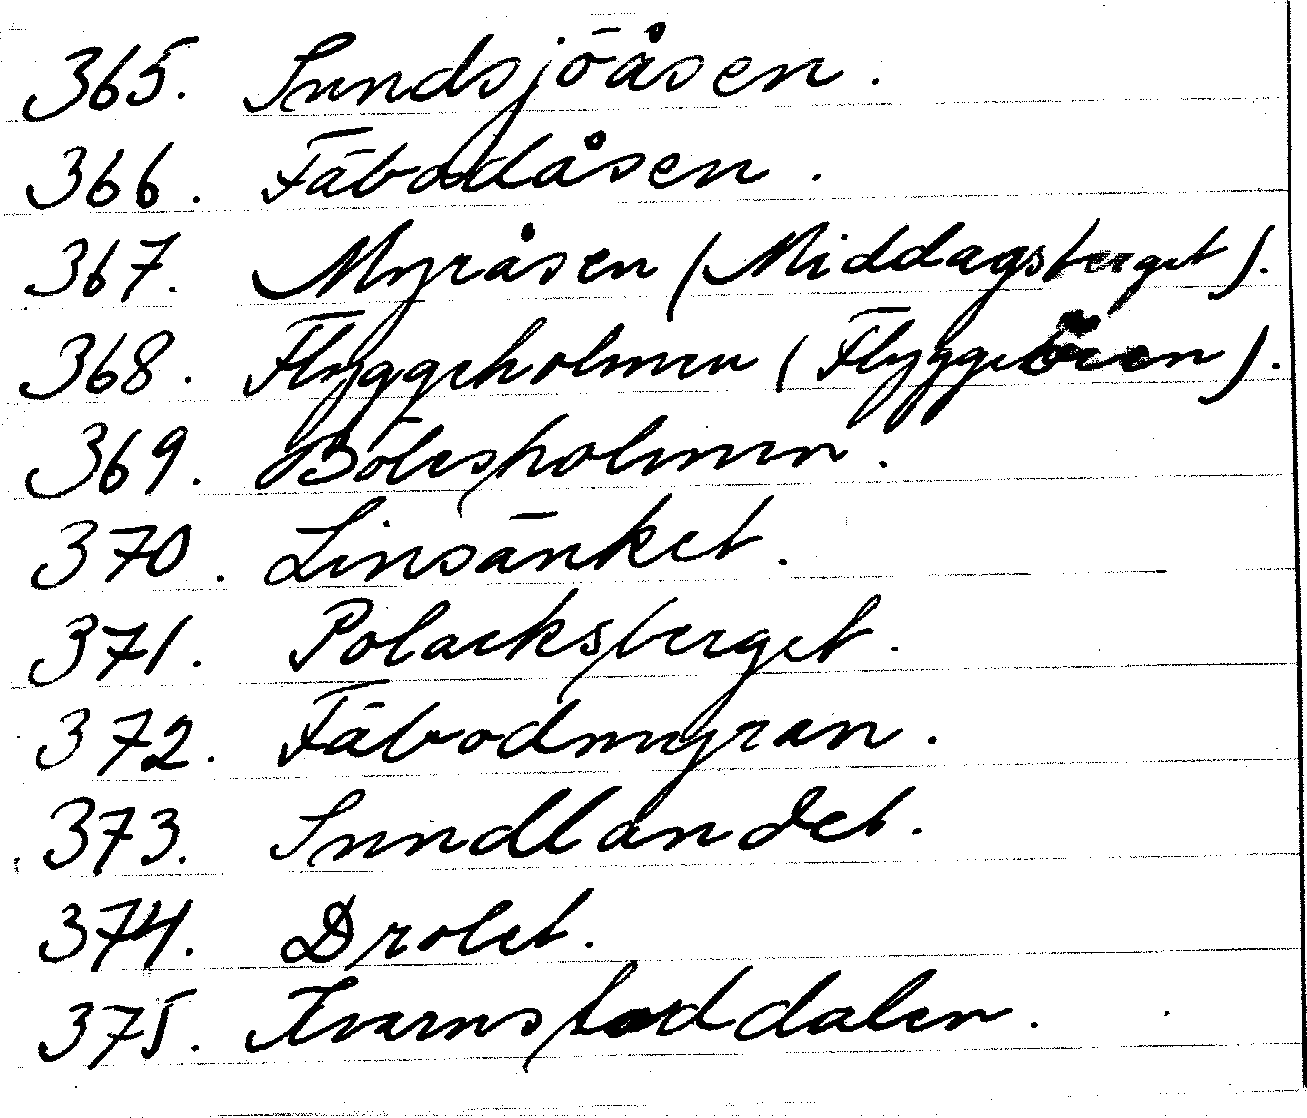 365. Sundsjöåsen.
366. Fäbodåsen.
367. Myråsen (Middagsberget).
368. Flyggeholmen (Flyggeören).
369. Bölesholmen.
370. Linsänket.
371. Polacksberget.
372. Fäbodmyran.
373. Sundlandet.
374. Drolet.
375. Kvarnstaddalen.